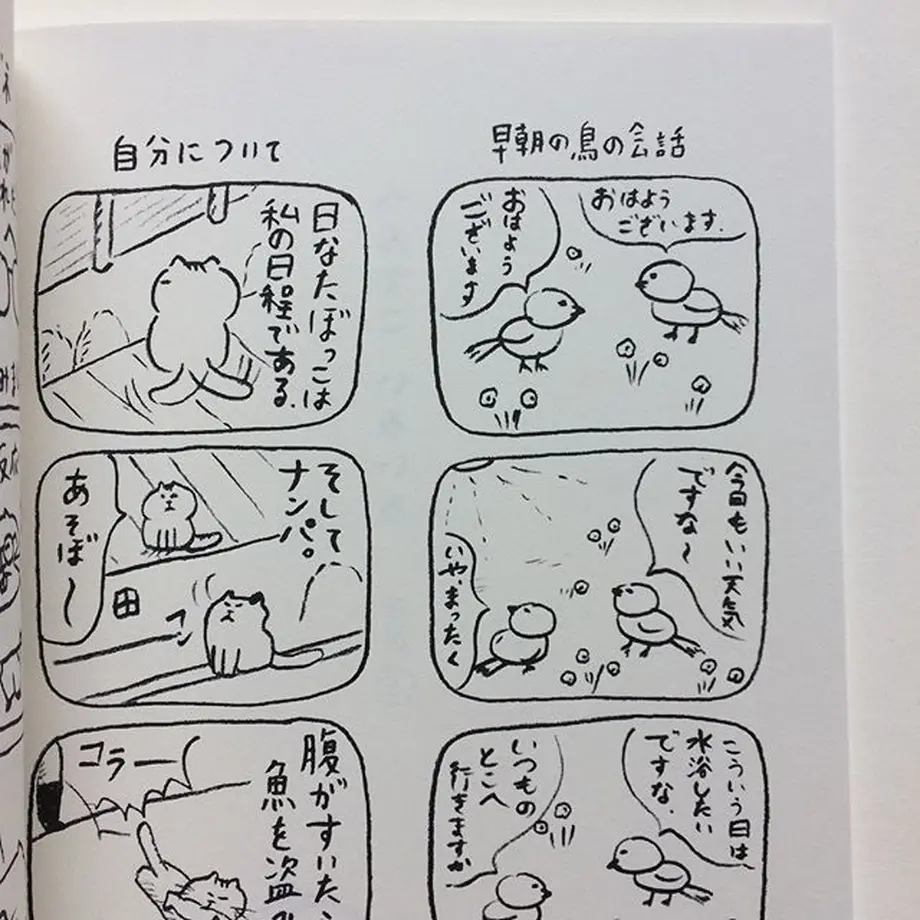 早朝の鳥の会話
おはよう
ございます.
おはよう
ございます
今日もいい天気
ですな〜
いや、まったく
こういう日は、
水浴したい
ですな.
いつもの
とこへ
行きますか
自分について
日なたぼっこは
私の日程である.
そして
ナンパ。
あそぼ〜
フン
腹がすいたら
魚を盗み
コラー